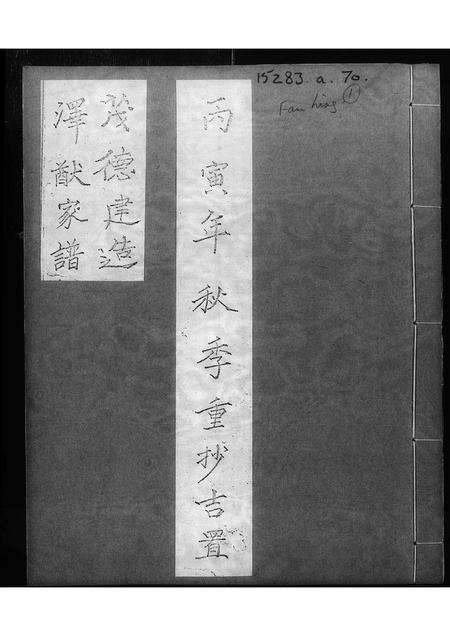 15283.a.70.
①
丙寅年秋季重抄吉置
茂德建造
澤猷家譜